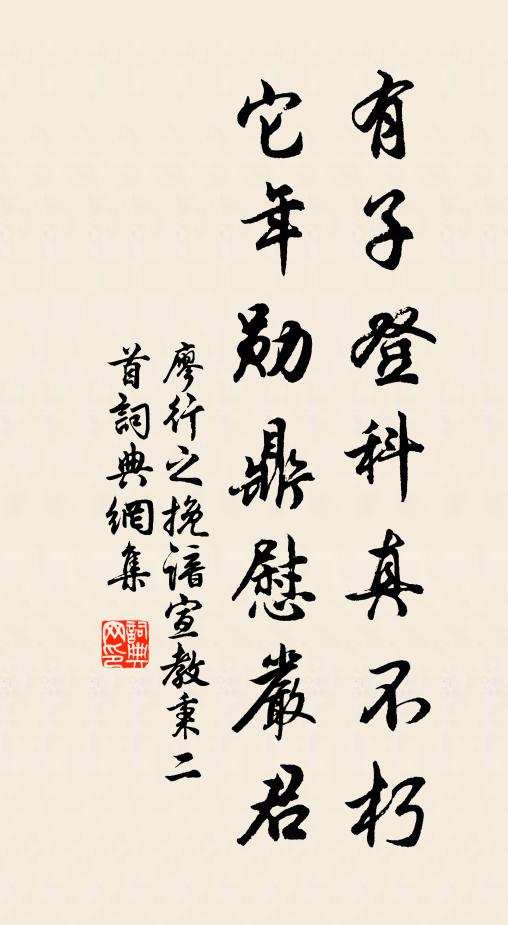 有子登科真不朽
它年勋鼎慰嚴君
廖行之挽谙宣教秉二
首詞典網集
詞典
网印